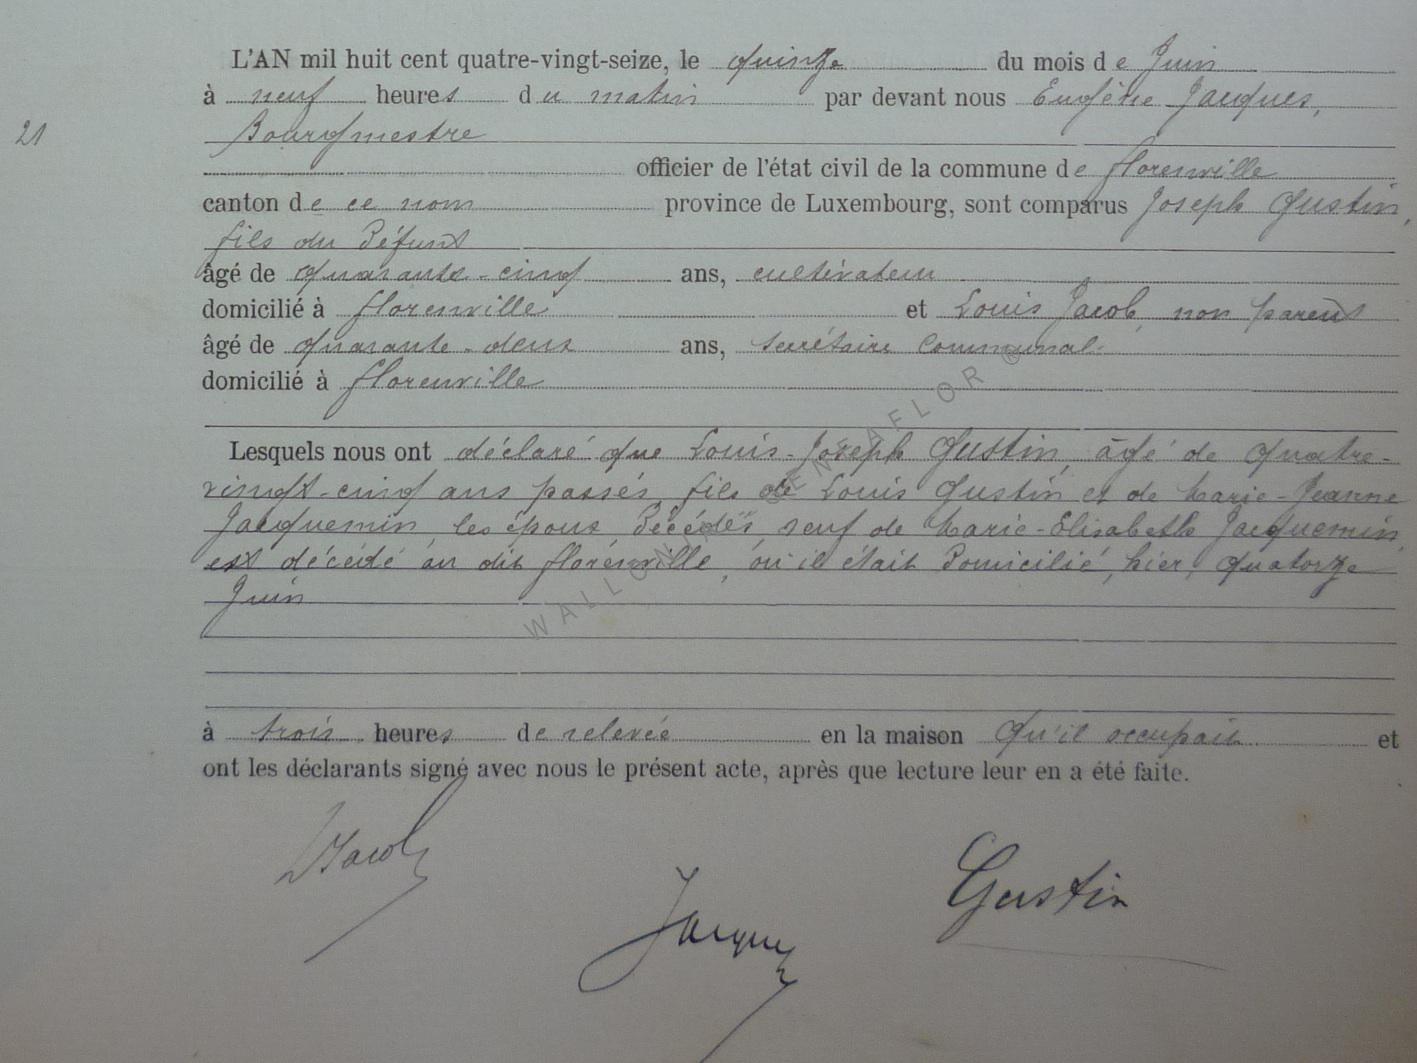 L'AN mil huit cent quatre-vingt-seize, le quinze du mois de Juin
à neuf heures du matin par devant nous Eugène Jacques,
21
Bourgmestre
officier de l'état civil de la commune de Florenville
canton de ce nom province de Luxembourg, sont comparus Joseph Gustin,
fils du défunt
âgé de quarante-cinq ans, cultivateur
domicilié à Florenville et Louis Jacob, non parent
âgé de quarante-deux ans, secrétaire communal
domicilié à Florenville
Lesquels nous ont déclaré que Louis-Joseph Gustin, âgé de quatre-
vingt-cinq ans passés, fils de Louis Gustin et de Marie-Jeanne
Jacquemin, les époux décédés, veuf de Marie-Elisabeth Jacquemin,
est décédé au dit Florenville, où il était domicilié, hier, quatorze
Juin
WALLONIE GENEAFLOR ©
à trois heures de relevée en la maison qu'il occupait et
ont les déclarants signé avec nous le présent acte, après que lecture leur en a été faite.
LJacob
Jacques
Gustin